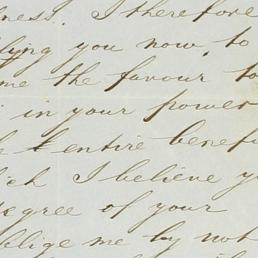 ness. I therefore
you now, to
me the favour to
in your power
entire benef
I believe y
egree of your
blige me by not